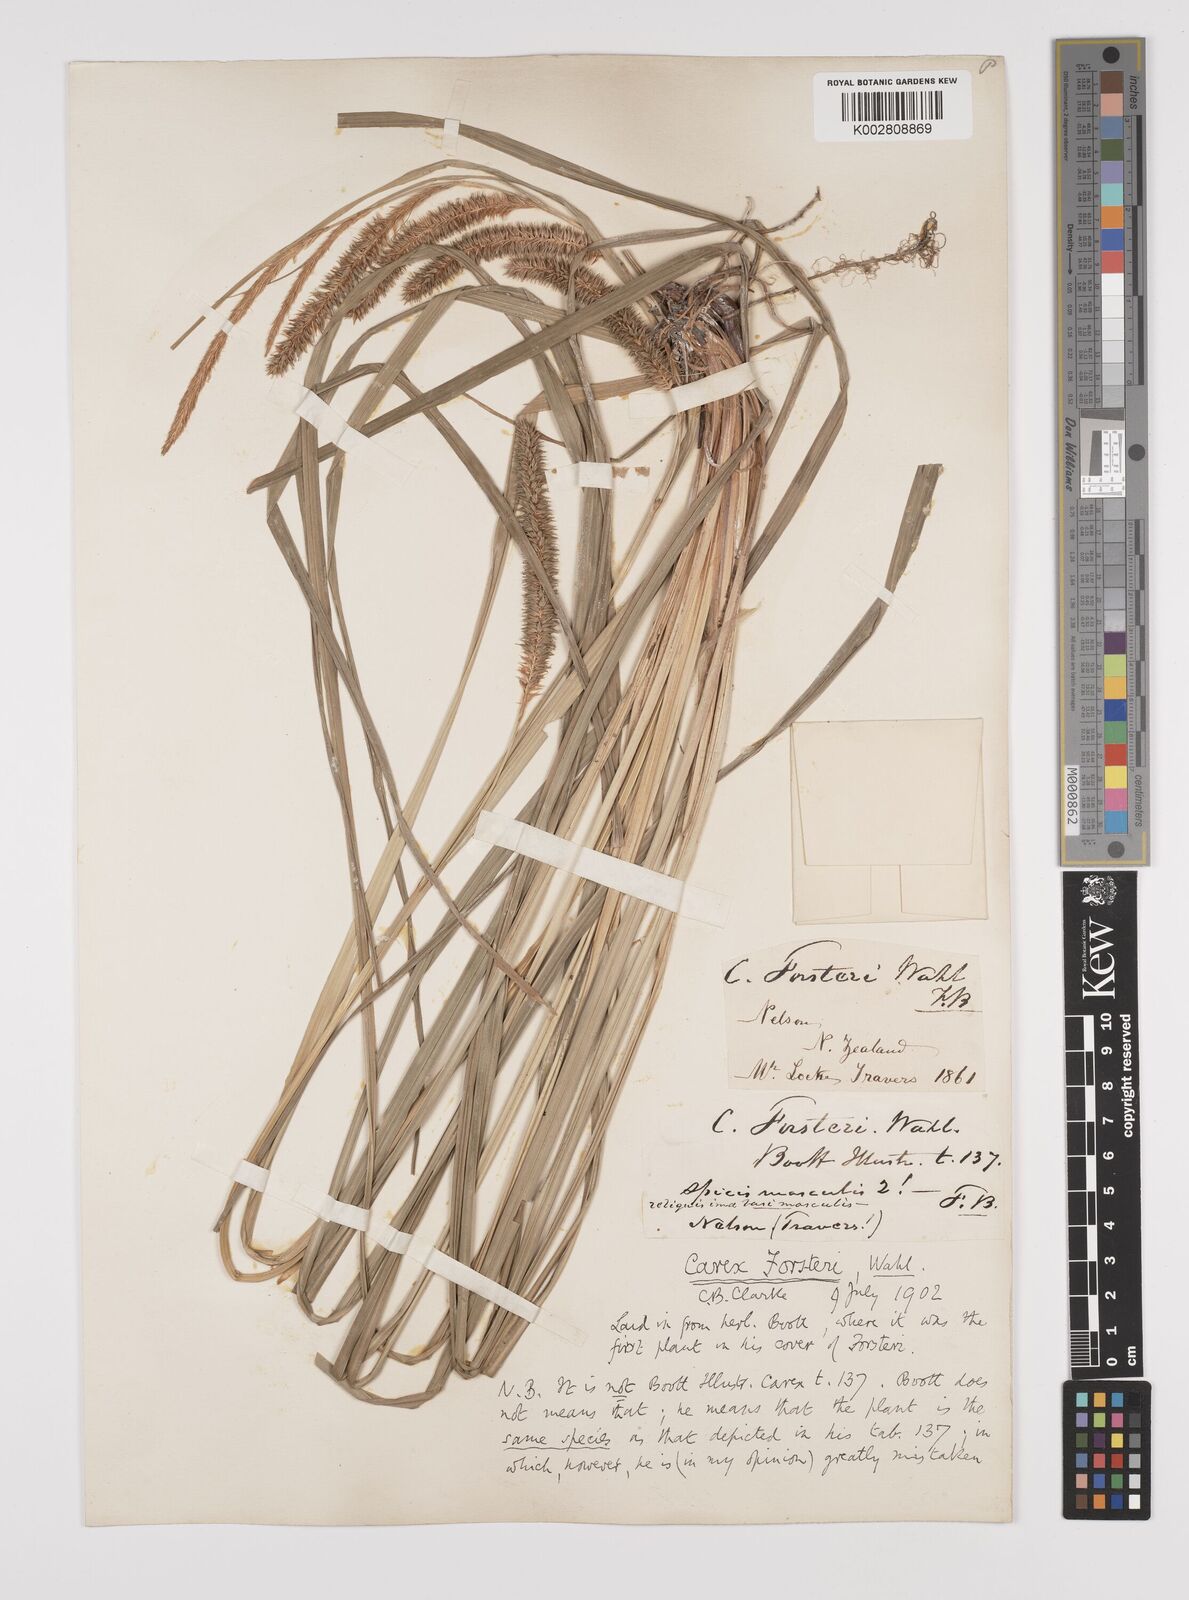 ROYAL BOTANIC GARDENS KEW
K002808869
C. Forsteri Wahl
F.B
Nelson
N. Zealand
Mr. Locke Travers 1861
C. Forsteri. Wahl.
Boott Illustr. t. 137.
spicis masculis 2! —
reliquis ima basi masculis —
F.B.
Nelson (Travers!)
Carex Forsteri, Wahl.
C.B. Clarke 9 July 1902
Laid in from herb. Boott, where it was the
first plant in his cover of Forsteri.
N.B. It is not Boott Illustr. Carex t. 137. Boott does
not means that; he means that the plant is the
same species as that depicted in his tab. 137; in
which, however, he is (in my opinion) greatly mistaken
inches
Density
Don Williams
centimeters
M000862
Royal Botanic Gardens
Kew
0 1 2 3 4 5 6 7 8 9 10
cm
copyright reserved